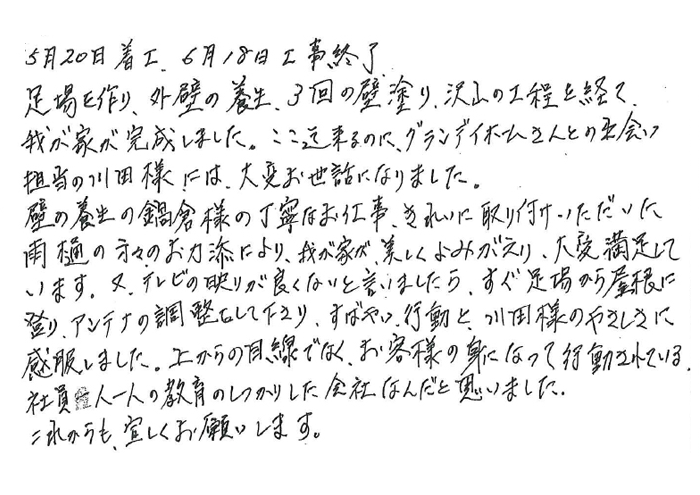 5月20日着工、6月18日工事終了
足場を作り、外壁の養生、3回の壁塗り、沢山の工程を経て、
我が家が完成しました。ここ迄来るのに、グランディホームさんとの出会い
担当の川田様には、大変お世話になりました。
壁の養生の鍋倉様の丁寧なお仕事、きれいに取り付けいただいた
雨樋の方々のお力添により、我が家が、美しくよみがえり、大変満足して
います。又、テレビの映りが良くないと言いましたら、すぐ足場から屋根に
登り、アンテナの調整もして下さり、すばやい行動と、川田様のやさしさに
感服しました。上からの目線でなく、お客様の身になって行動されている、
社員一人一人の教育のしっかりした会社なんだと思いました。
これからも、宜しくお願いします。